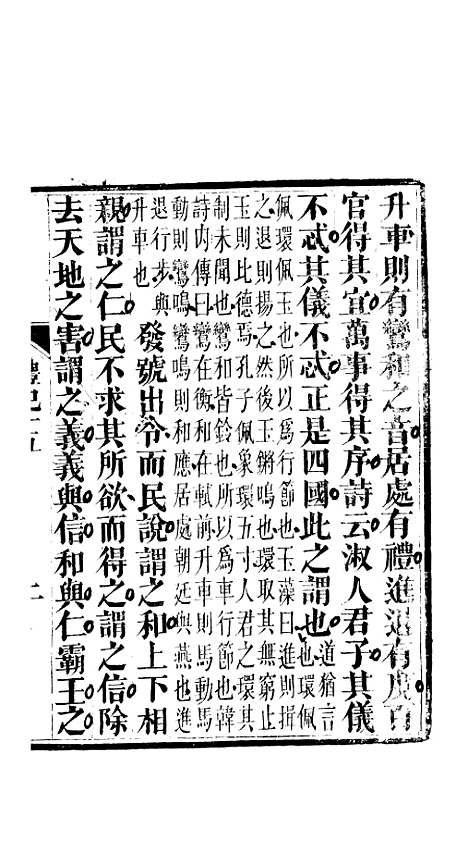 升車則有鸞和之音居處有禮進退有度百
官得其宜萬事得其序詩云淑人君子其儀
不忒其儀不忒正是四國此之謂也道猶言也環佩
佩環佩玉也所以爲行節也玉藻曰進則揖
之退則揚之然後玉鏘鳴也環取其無窮止
玉則比德焉孔子佩象環五寸人君之環其
制未聞也鸞和皆鈴也所以爲車行節也韓
詩內傳曰鸞在衡和在軾前升車則馬動馬
動則鸞鳴鸞鳴則和應居處朝廷與燕也進
退行步與升車也發號出令而民說謂之和上下相
親謂之仁民不求其所欲而得之謂之信除
去天地之害謂之義義與信和與仁霸王之
禮記十五
二